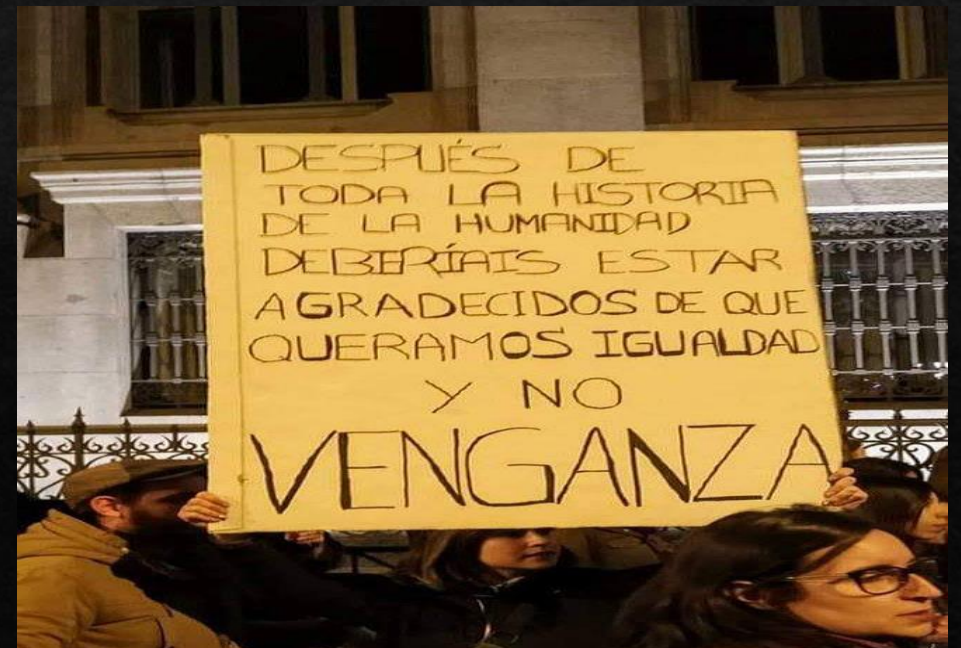 DESPUÉS DE
TODA LA HISTORIA
DE LA HUMANIDAD
DEBERÍAIS ESTAR
AGRADECIDOS DE QUE
QUERAMOS IGUALDAD
Y NO
VENGANZA